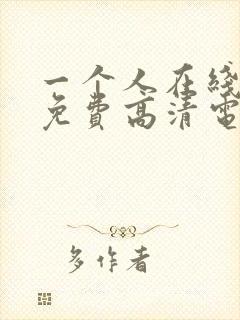 一个人在线
免费高清电
多作者